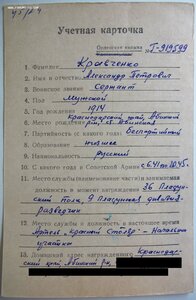 Учетная карточка
Орденская книжка Г-919599
1. Фамилия Кравченко
2. Имя и отчество Александр Петрович
3. Воинское звание Сержант
4. Пол Мужской
5. Год рождения 1914
6. Место рождения Краснодарский край, Абинский
7. Партийность (с какого года) беспартийный
8. Образование низшее
9. Национальность русский
10. С какого года в Советской Армии с
11. Место службы (наименование части) и занимаемая
должность в момент награждения 36 Пластун-
ский полк, 9 Пластунская дивизия
разведчик
12. Место службы и должность в настоящее время
Артель "Красный Столяр" - Начальник
участка
13. Домашний адрес награжденного Краснодар-
ский край, Абинский